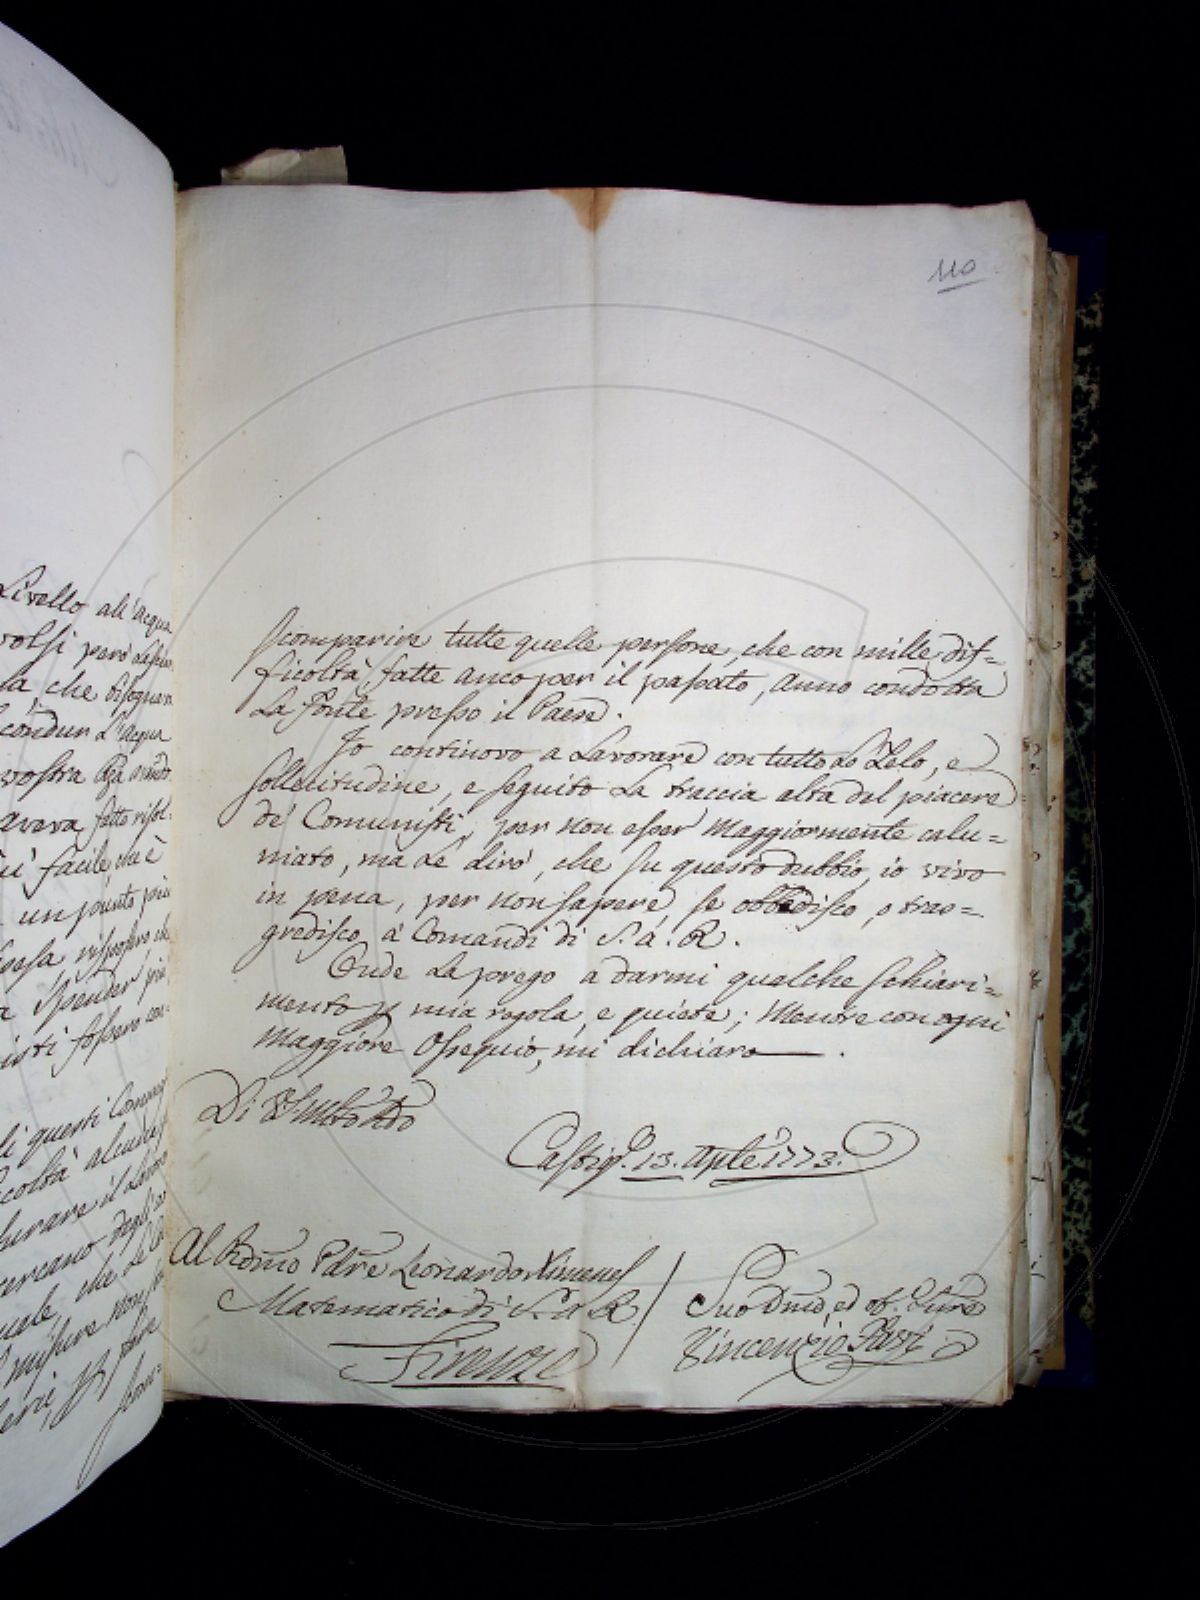 Livello all'acqua
volsi però
la, che bisognava
condur l'acqua
vostra Pza
aveva fatto
facile, che è
un punto più
spesa risposero che
spender più
fossero
di questi
coltà
il
cercano degli
che
misure non
110
scomparire tutte quelle persone, che con mille dif=
ficoltà, fatte anco per il passato, anno condotta
La Fonte presso il Paese.
Io continovo a Lavorare con tutto lo Zelo, e
sollecitudine, e seguito La traccia alta del piacere
de' Comunisti, per non esser Maggiormente calu=
niato, ma Le dirò, che su questo dubbio, io vivo
in pena, per non sapere, se obbedisco, o tras=
gredisco a' Comandi di S. A. R.
Onde La prego a darmi qualche Schiari=
mento p mia regola, e quiete; Mentre con ogni
Maggiore Ossequio, mi dichiaro
Di
Castigne. 13. Aple 1773.
Al Rdmo Pdre Leonardo Ximenes
Matematico di S. A. R.
Firenze
Suo Dmo, ed ob. Sure
Vincenzio Pavi